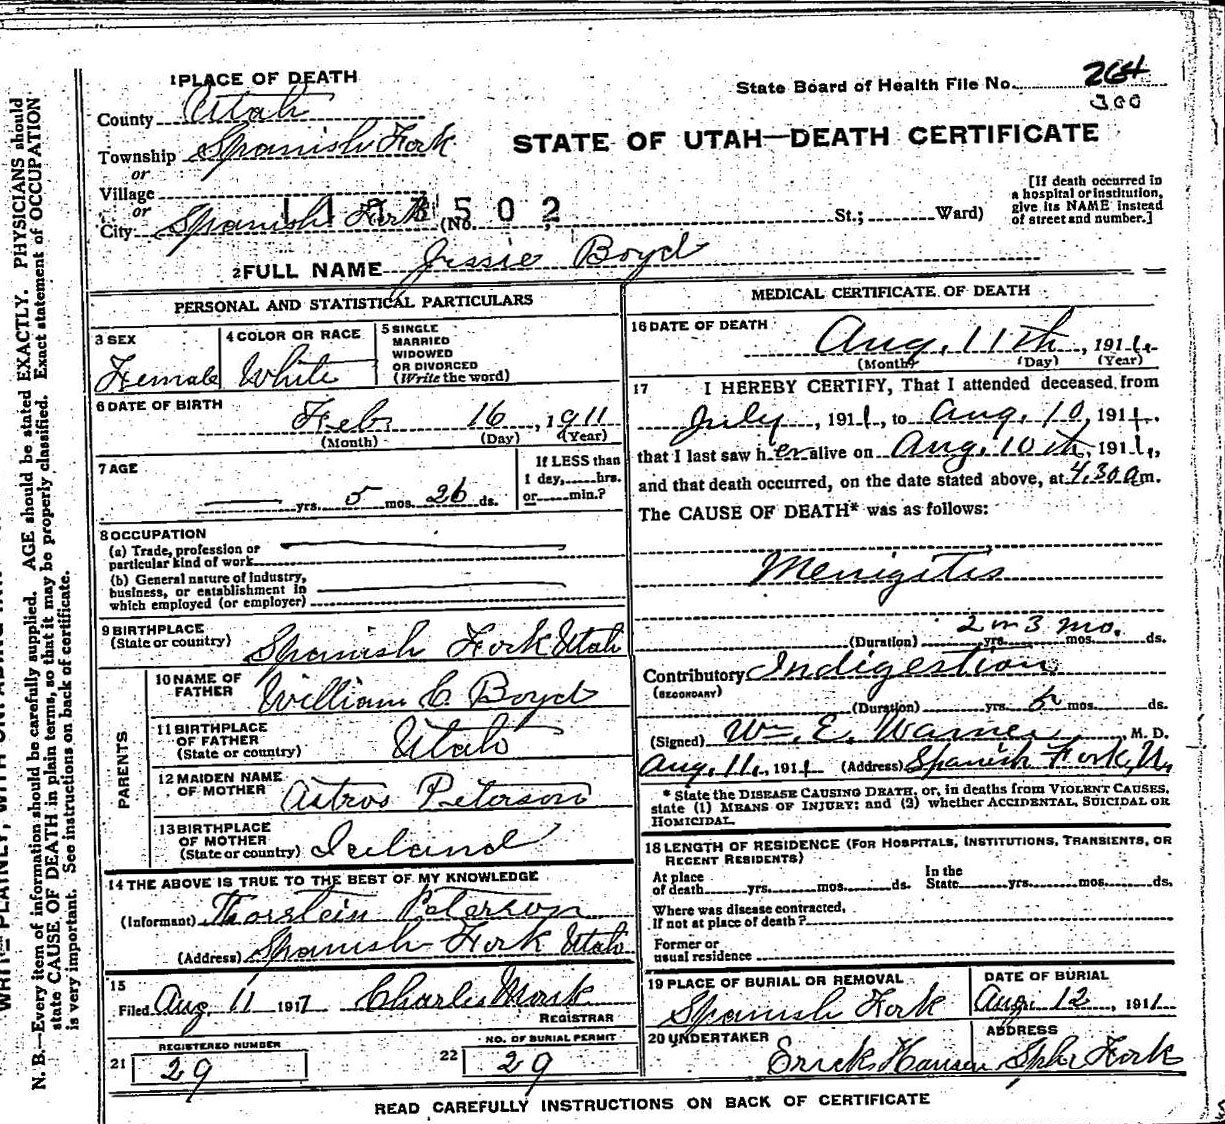 1 PLACE OF DEATH
County Utah
Township Spanish Fork
or
Village
or
City Spanish Fork (No. St.; Ward)
1173502
State Board of Health File No. 264
300
STATE OF UTAH—DEATH CERTIFICATE
[If death occurred in
a hospital or institution,
give its NAME instead
of street and number.]
2 FULL NAME Jessie Boyd
PERSONAL AND STATISTICAL PARTICULARS
3 SEX
Female
4 COLOR OR RACE
White
5 SINGLE
MARRIED
WIDOWED
OR DIVORCED
(Write the word)
6 DATE OF BIRTH
Feb 16, 1911
(Month) (Day) (Year)
7 AGE
yrs. 5 mos. 26 ds.
If LESS than
1 day, hrs.
or min.?
8 OCCUPATION
(a) Trade, profession or
particular kind of work
(b) General nature of industry,
business, or establishment in
which employed (or employer)
9 BIRTHPLACE
(State or country) Spanish Fork Utah
PARENTS
10 NAME OF
FATHER William C Boyd
11 BIRTHPLACE
OF FATHER
(State or country) Utah
12 MAIDEN NAME
OF MOTHER Astros Peterson
13 BIRTHPLACE
OF MOTHER
(State or country) Iceland
14 THE ABOVE IS TRUE TO THE BEST OF MY KNOWLEDGE
(Informant) Thorstein Peterson
(Address) Spanish Fork Utah
15
Filed Aug 11 1917 Charles Monk
REGISTRAR
REGISTERED NUMBER
21 29
NO. OF BURIAL PERMIT
22 29
MEDICAL CERTIFICATE OF DEATH
16 DATE OF DEATH
Aug. 11th, 1911.
(Month) (Day) (Year)
17 I HEREBY CERTIFY, That I attended deceased from
July, 1911, to Aug. 10, 1911.
that I last saw her alive on Aug. 10th, 1911,
and that death occurred, on the date stated above, at 4.30 a m.
The CAUSE OF DEATH* was as follows:
Menigitis
(Duration) 2 or 3 mo. yrs. mos. ds.
Contributory Indigestion
(SECONDARY)
(Duration) yrs. mos. ds.
(Signed) Wm. E. Warner, M. D.
Aug. 11., 1911 (Address) Spanish Fork, U.
* State the DISEASE CAUSING DEATH, or, in deaths from VIOLENT CAUSES,
state (1) MEANS OF INJURY; and (2) whether ACCIDENTAL, SUICIDAL OR
HOMICIDAL.
18 LENGTH OF RESIDENCE (FOR HOSPITALS, INSTITUTIONS, TRANSIENTS, OR
RECENT RESIDENTS)
At place
of death yrs. mos. ds.
In the
State yrs. mos. ds.
Where was disease contracted,
if not at place of death?
Former or
usual residence
19 PLACE OF BURIAL OR REMOVAL
Spanish Fork
DATE OF BURIAL
Aug. 12, 1911
20 UNDERTAKER
Errick Hansen
ADDRESS
Spk Fork
READ CAREFULLY INSTRUCTIONS ON BACK OF CERTIFICATE
N. B.—Every item of information should be carefully supplied. AGE should be stated EXACTLY. PHYSICIANS should
state CAUSE OF DEATH in plain terms, so that it may be properly classified. Exact statement of OCCUPATION
is very important. See instructions on back of certificate.